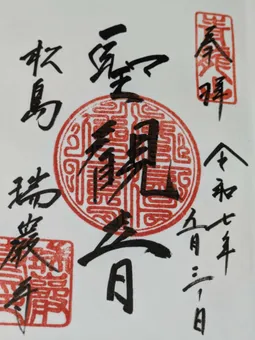 奉拝
令和七年
五月三十日
聖観音
松島
瑞巌寺